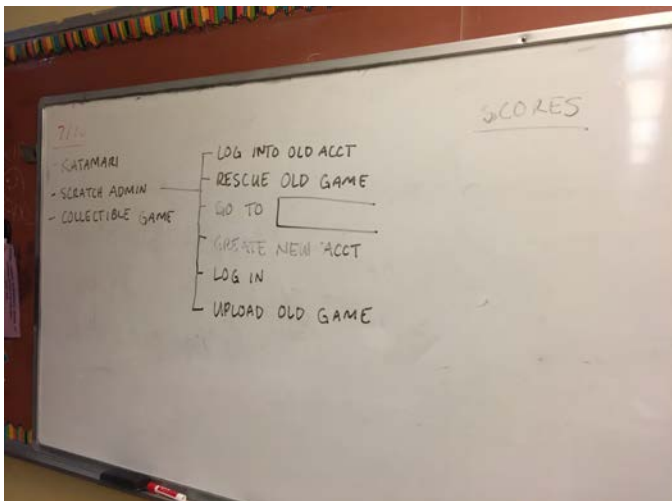 SCORES
- KATAMARI
- SCRATCH ADMIN
- COLLECTIBLE GAME
- LOG INTO OLD ACCT
- RESCUE OLD GAME
- GO TO
- CREATE NEW ACCT
- LOG IN
- UPLOAD OLD GAME